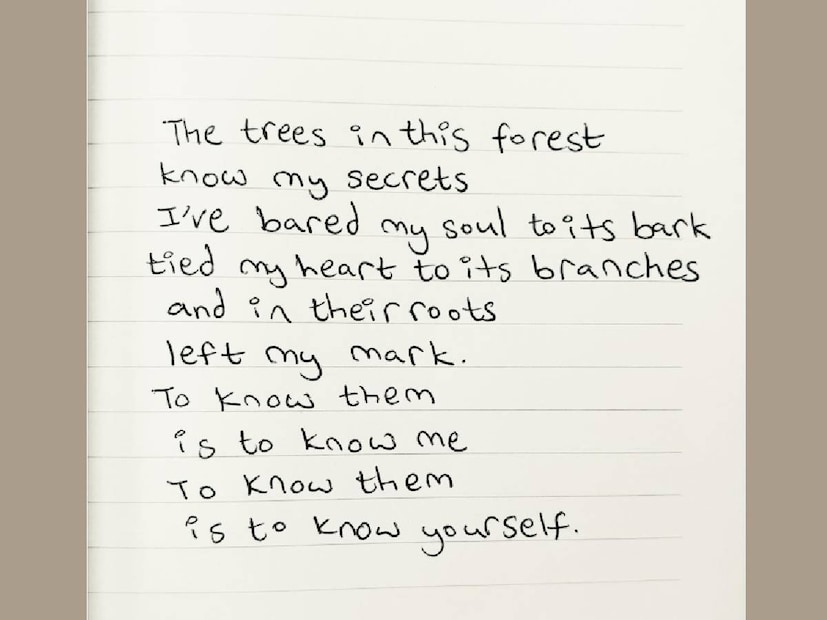 The trees in this forest
know my secrets
I've bared my soul to its bark
tied my heart to its branches
and in their roots
left my mark.
To know them
is to know me
To know them
is to know yourself.